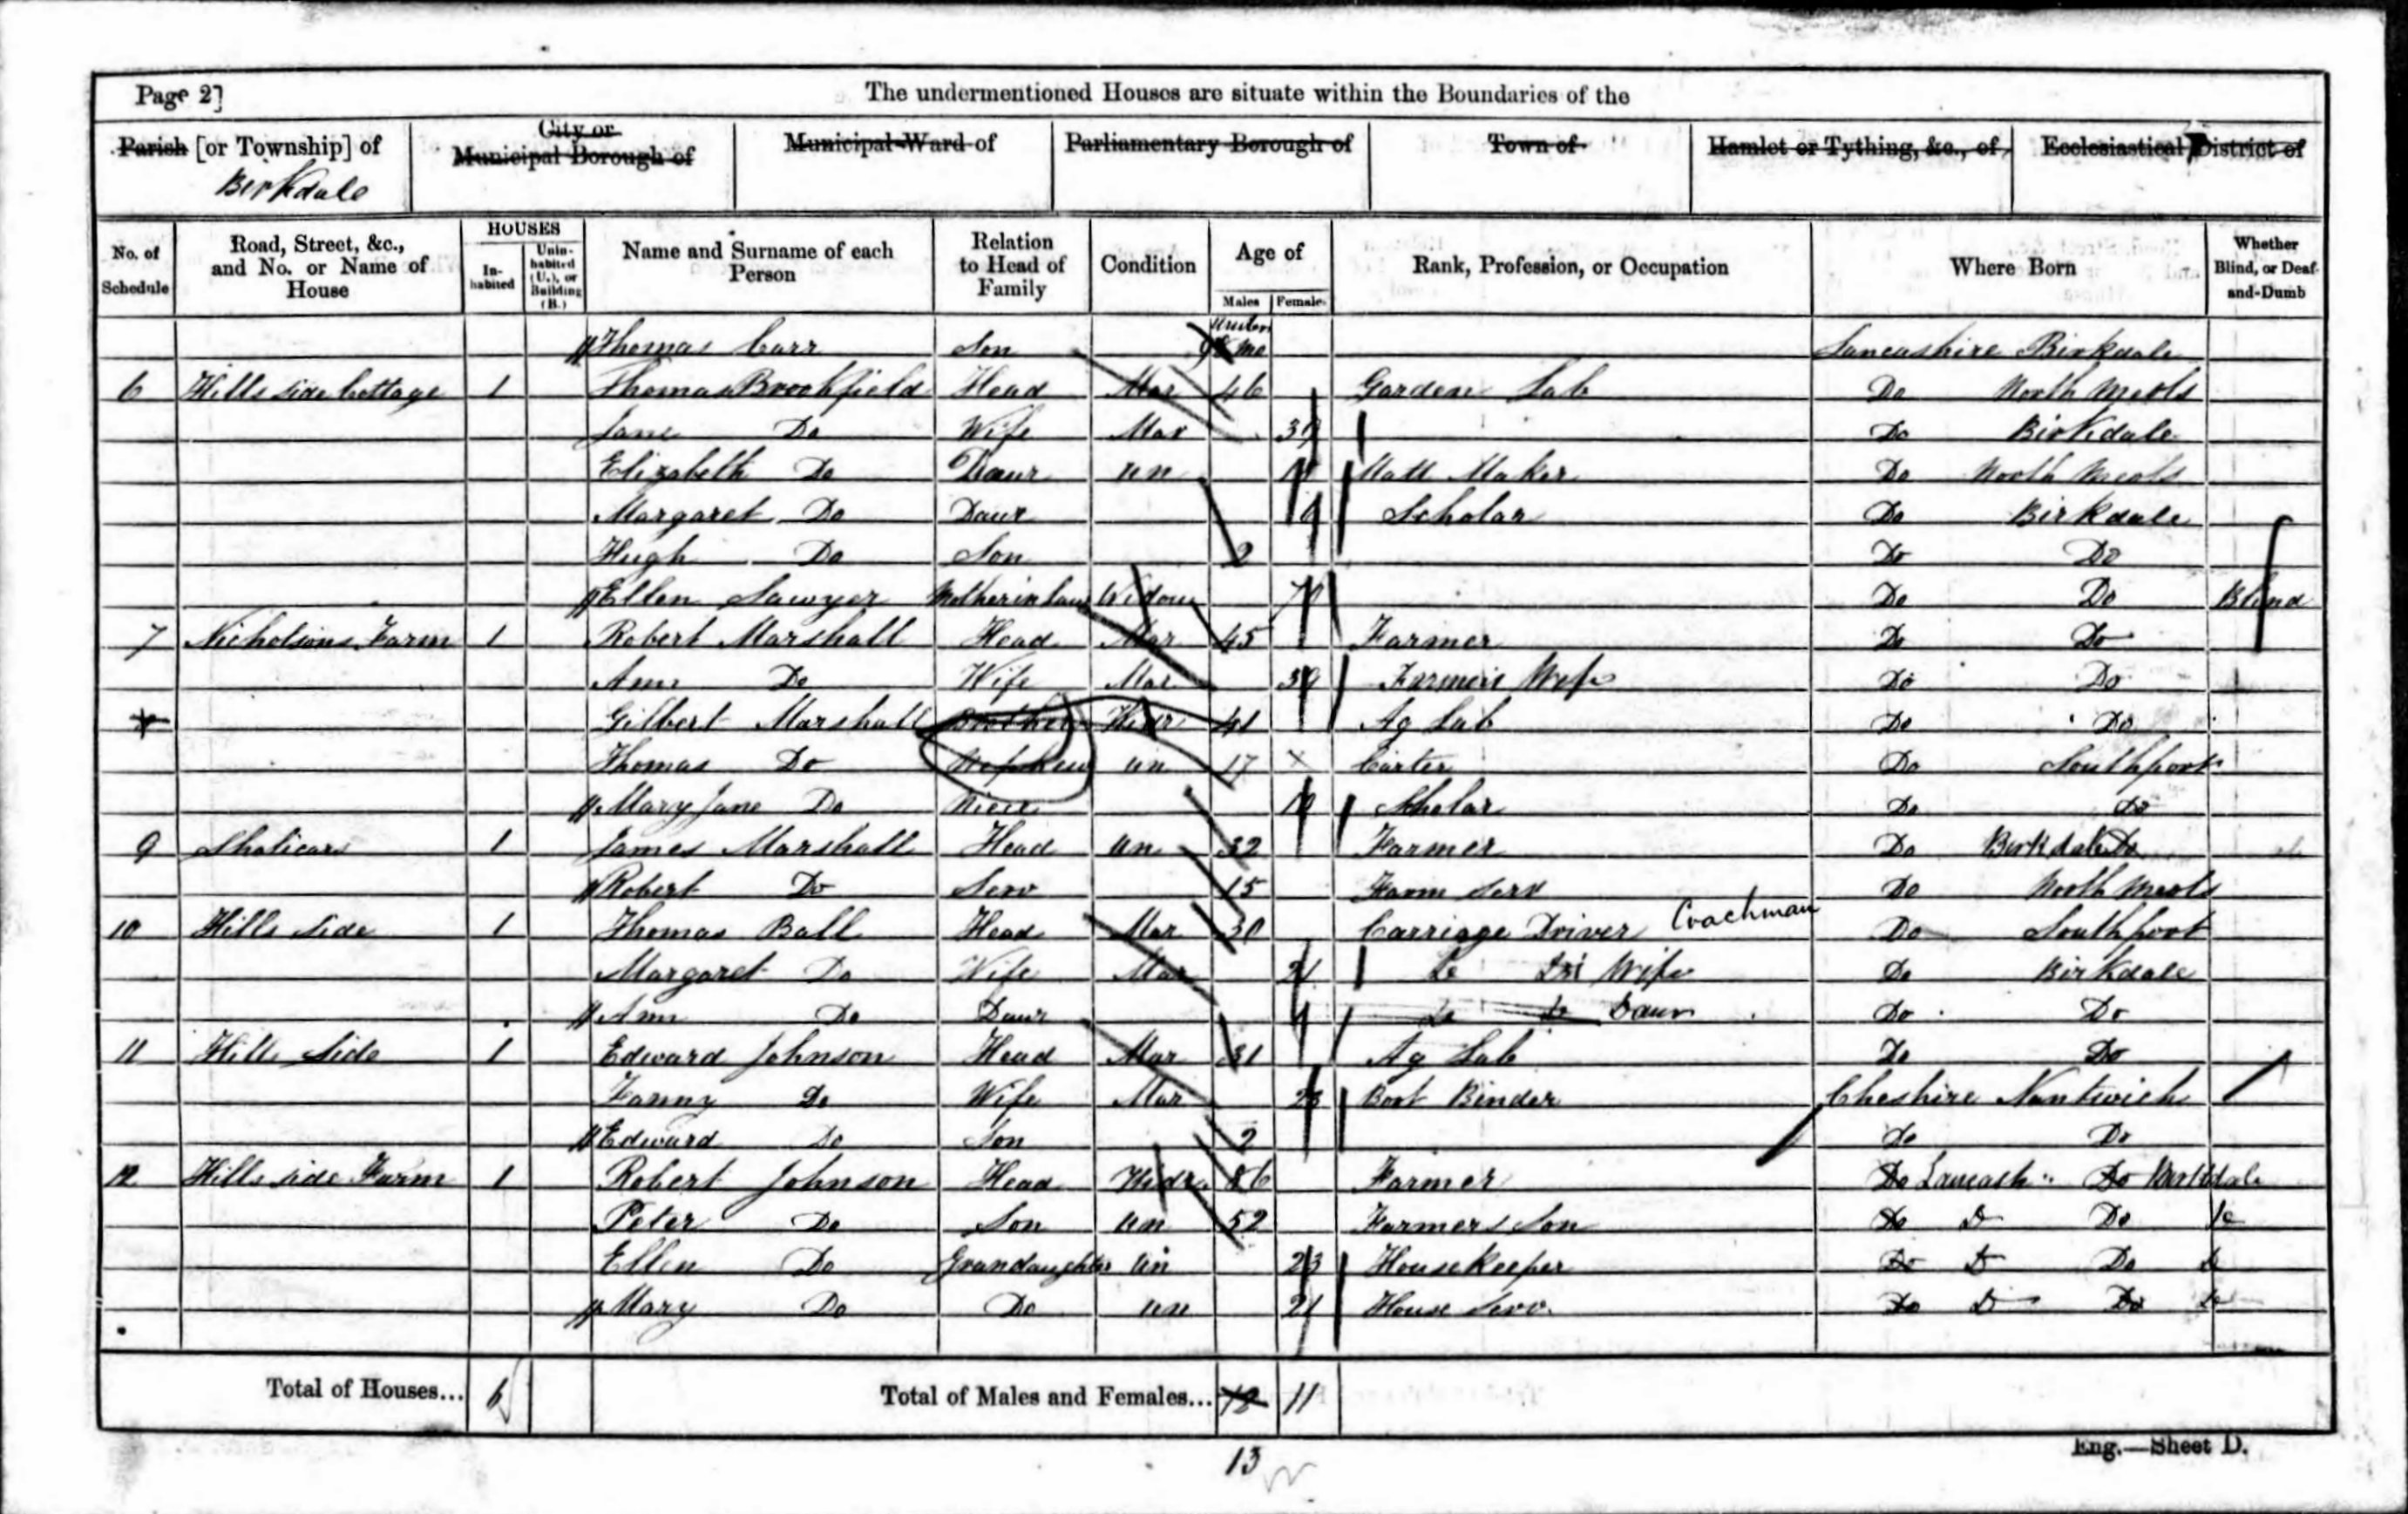 Page 2]
The undermentioned Houses are situate within the Boundaries of the
Parish [or Township] of
Birkdale
City or
Municipal Borough of
Municipal Ward of
Parliamentary Borough of
Town of
Hamlet or Tything, &c., of
Ecclesiastical District of
No. of Schedule
Road, Street, &c., and No. or Name of House
HOUSES
In-habited
Unin-habited (U.), or Building (B.)
Name and Surname of each Person
Relation to Head of Family
Condition
Age of
Males
Females
Rank, Profession, or Occupation
Where Born
Whether Blind, or Deaf-and-Dumb
Thomas Carr Son Mo Lancashire Birkdale
6 Hills side Cottage 1 Thomas Brookfield Head Mar 46 Garden Lab Do North Meols
Jane Do Wife Mar 39 Do Birkdale
Elizabeth Do Daur un Matt Maker Do North Meols
Margaret Do Daur Scholar Do Birkdale
Hugh Do Son 2 Do Do
Ellen Sawyer Mother in Law Widow 70 Do Do Blind
7 Nicholsons Farm 1 Robert Marshall Head Mar 45 Farmer Do Do
Ann Do Wife Mar 39 Farmers Wife Do Do
Gilbert Marshall Brother Widr 41 Ag Lab Do Do
Thomas Do Nephew un 17 x Carter Do Southport
Mary Jane Do Niece 10 Scholar Do Do
9 Shalicars 1 James Marshall Head un 32 Farmer Do Birkdale Do
Robert Do Serv 15 Farm Serv Do North Meols
10 Hills Side 1 Thomas Ball Head Mar 30 Carriage Driver Coachman Do Southport
Margaret Do Wife Mar 21 Do Wife Do Birkdale
Ann Do Daur Do Do Daur Do Do
11 Hills Side 1 Edward Johnson Head Mar 31 Ag Lab Do Do
Fanny Do Wife Mar 23 Boot Binder Cheshire Nantwich
Edward Do Son 2 Do Do
12 Hills side Farm 1 Robert Johnson Head Widr 86 Farmer Do Lancash Do Birkdale
Peter Do Son un 52 Farmers Son Do Do Do Do
Ellen Do Grandaughter un 23 Housekeeper Do Do Do Do
Mary Do Do un 21 House Serv. Do Do Do Do
Total of Houses... 6
Total of Males and Females... 12 11
13
Eng.—Sheet D.